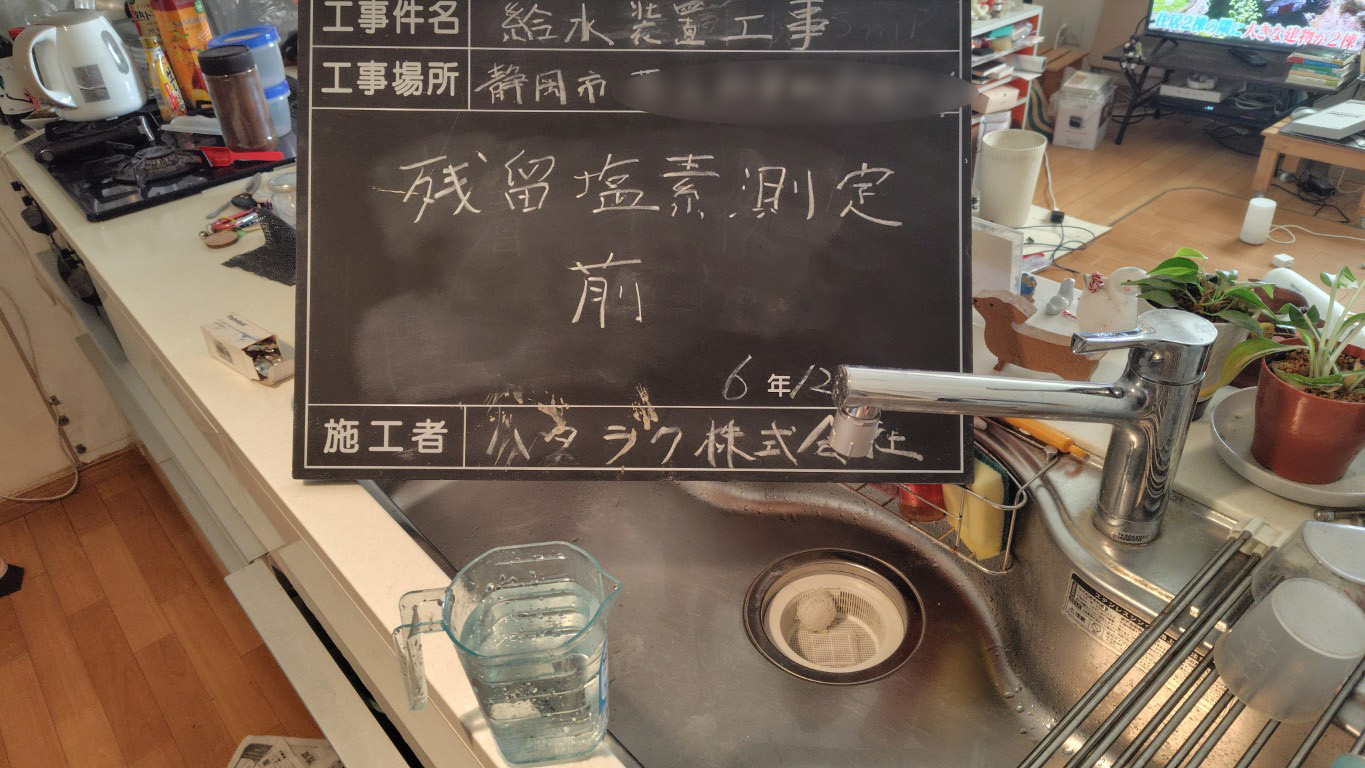 工事件名 給水装置工事
工事場所 静岡市
残留塩素測定
前
6年12
施工者 ハタラク株式会社
住居2棟の隣に大きな建物が2棟